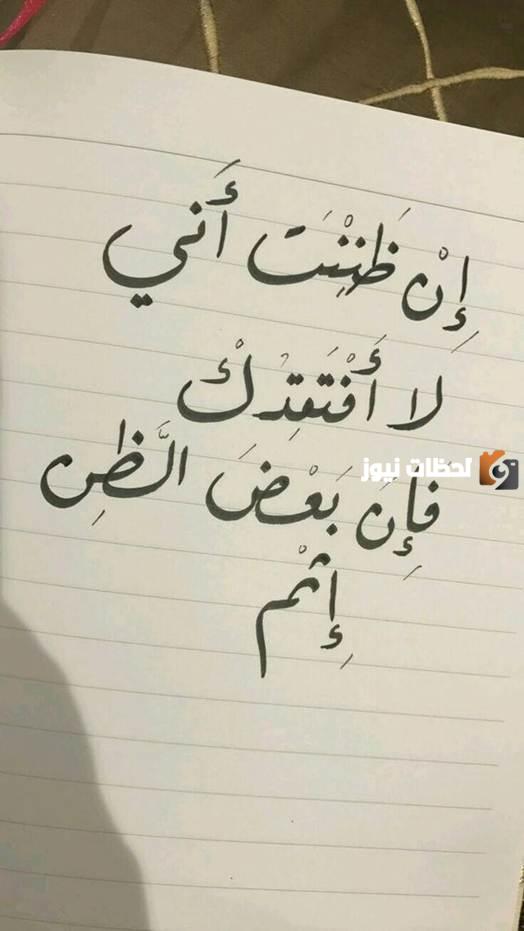 إِنْ ظَنِنْتَ أَني
لَا أَفْتَقِدُكْ
فَإِنَ بَعْضَ الَّظِن
إِثْم
لحظات نيوز